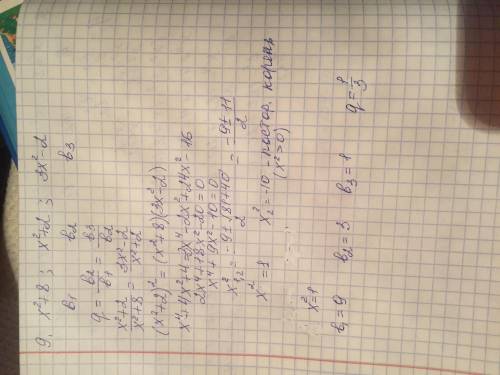 9. x²+8 ; x²+2 ; 3x²-2
b₁ b₂ b₃
q = b₂/b₁ = b₃/b₂
(x²+2)/(x²+8) = (3x²-2)/(x²+2)
(x²+2)² = (x²+8)(3x²-2)
x⁴+4x²+4=3x⁴-2x²+24x²-16
2x⁴+18x²-20=0
x⁴+9x²-10=0
x²₁,₂ = (-9±√(81+40))/2 = (-9±11)/2
x²=1 x²₂=-10 - постор. корень
(x²>0)
x²=1
b₁=9 b₂=3 b₃=1 q=1/3